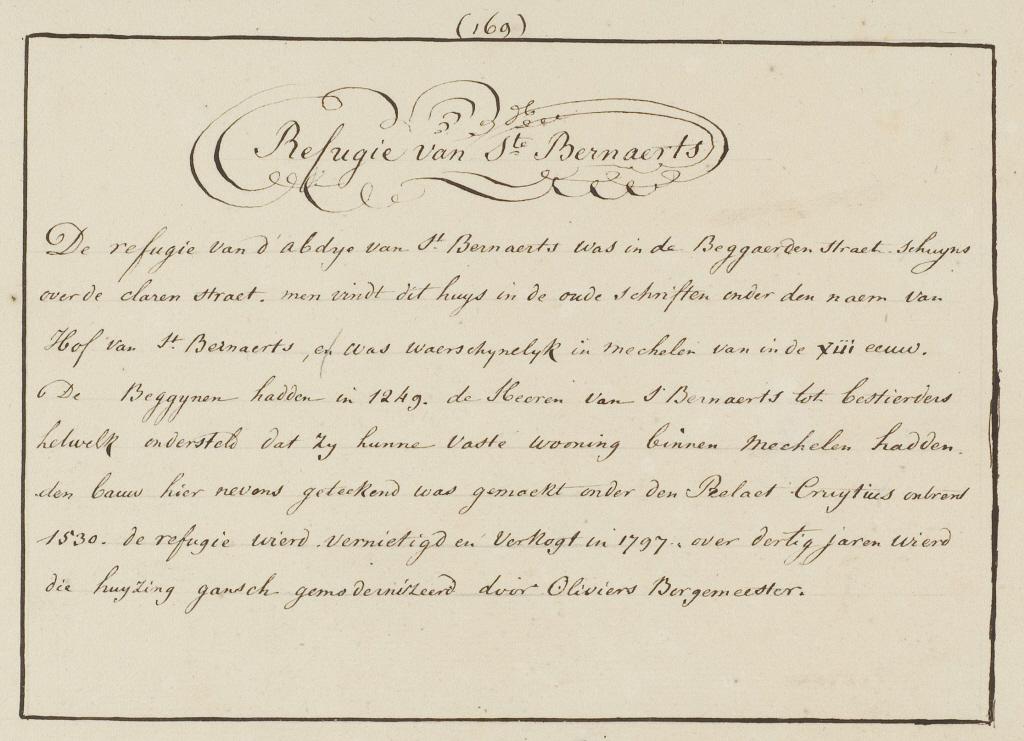 (169)
Refugie van Ste Bernaerts
De refugie van d'abdye van St Bernaerts was in de Beggaerden straet schuyns
over de claren straet. men vindt dit huys in de oude schriften onder den naem van
Hof van St Bernaerts, en was waerschynelyk in mechelen van in de XIII eeuw.
De Beggynen hadden in 1249. de Heeren van St Bernaerts tot bestierders
hetwelk ondersteld dat zy hunne vaste wooning binnen mechelen hadden.
den bauw hier nevens geteekend was gemaekt onder den Prelaet Cruytius ontrent
1530. de refugie wierd vernietigd en verkogt in 1797. over dertig jaren wierd
die huyzing gansch gemodernizeerd door Oliviers Borgemeester.